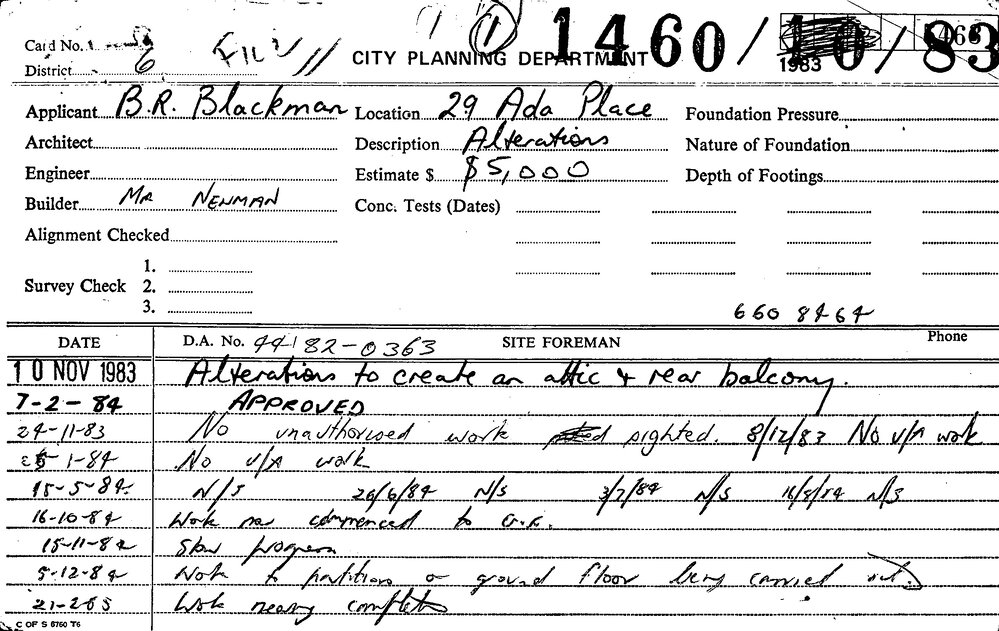 1460/10/83
Card No. 1 CITY PLANNING DEPARTMENT 1983 1466
District 6 FILE
Applicant B.R. Blackman Location 29 Ada Place Foundation Pressure
Architect Description Alterations Nature of Foundation
Engineer Estimate $ $5,000 Depth of Footings
Builder MR NEWMAN Conc. Tests (Dates)
Alignment Checked
1.
Survey Check 2.
3.
660 8464
DATE D.A. No. 44-82-0363 SITE FOREMAN Phone
10 NOV 1983 Alterations to create an attic & rear balcony.
7-2-84 APPROVED
24-11-83 No unauthorised work sighted. 8/12/83 No u/A work
1-84 No u/A work
15-5-84 N/S 26/6/84 N/S 3/7/84 N/S 16/8/84 N/S
16-10-84 Work commenced to
15-11-84 Slow progress
5-12-84 Work to partitions ground floor being carried out.
21-2-85 Work nearing completion
C OF S 6760 T6